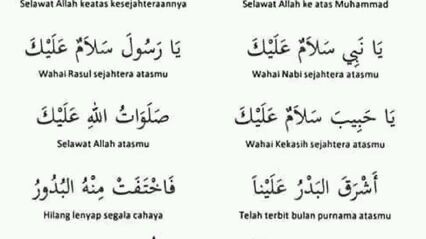 Selawat Allah ke atas Muhammad
Selawat Allah keatas kesejahteraannya
يَا نَبِي سَلاَمٌ عَلَيْكَ
يَا رَسُولَ سَلاَمٌ عَلَيْكَ
Wahai Nabi sejahtera atasmu
Wahai Rasul sejahtera atasmu
يَا حَبِيبَ سَلاَمٌ عَلَيْكَ
صَلَوَاتُ اللهِ عَلَيْكَ
Wahai Kekasih sejahtera atasmu
Selawat Allah atasmu
أَشْرَقَ الْبَدْرُ عَلَيْناَ
فَاخْتَفَتْ مِنْهُ الْبُدُورُ
Telah terbit bulan purnama atasmu
Hilang lenyap segala cahaya